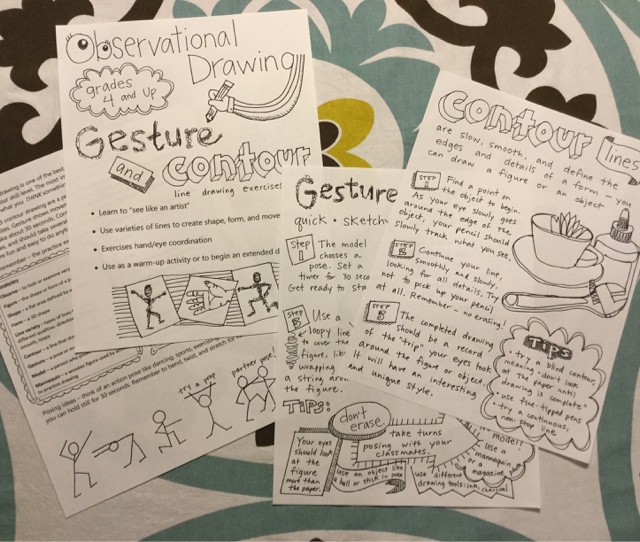 Observational
Drawing
grades
4 and up
Gesture
and
contour
line drawing exercises
• Learn to "see like an artist"
• Use varieties of lines to create shape, form, and move
• Exercises hand/eye coordination
• Use as a warm-up activity or to begin an extended d
Gesture
quick • sketch
Step
1
The model
chooses a
pose. Set a
timer for 30 seco
Get ready to sta
Step
Use a
loopy line
to cover
the
figure, lik
wrapping
a string arou
the figure.
TIPS:
don't
erase.
Your eyes
should look
at the
figure
more than
the paper.
take turns
posing with your
classmates.
use an object like
a ball or stick in pose
model?
use a
mannequin
or a
magazine
use different
drawing tools: ink, charcoal
contour lines
are slow, smooth, and define the
edges and details of a form – you
can draw a figure or an object
Step
1
Find a point on
the object to begin.
As your eye slowly goes
around the edge of the
object, your pencil should
slowly track what you see.
Step
2
Continue your line,
smoothly and slowly,
looking for all details. Try
not to pick up your pencil
at all. Remember – no erasing!
Step
3
The completed drawing
should be a record
of the "trip" your eyes took
around the figure or object.
It will have an interesting
and unique style.
Tips
• try a blind contour,
meaning - don't look
at the paper until
drawing is complete
• use felt-tipped pens
• try a continuous,
non-stop line
drawing is one of the best
your skill level. The most in
what you THINK something
Posing ideas – think of an action pose like dancing, sports, exercising
you can hold still for 30 seconds. Remember to bend, twist, and stretch for
try a prop
partner pose!